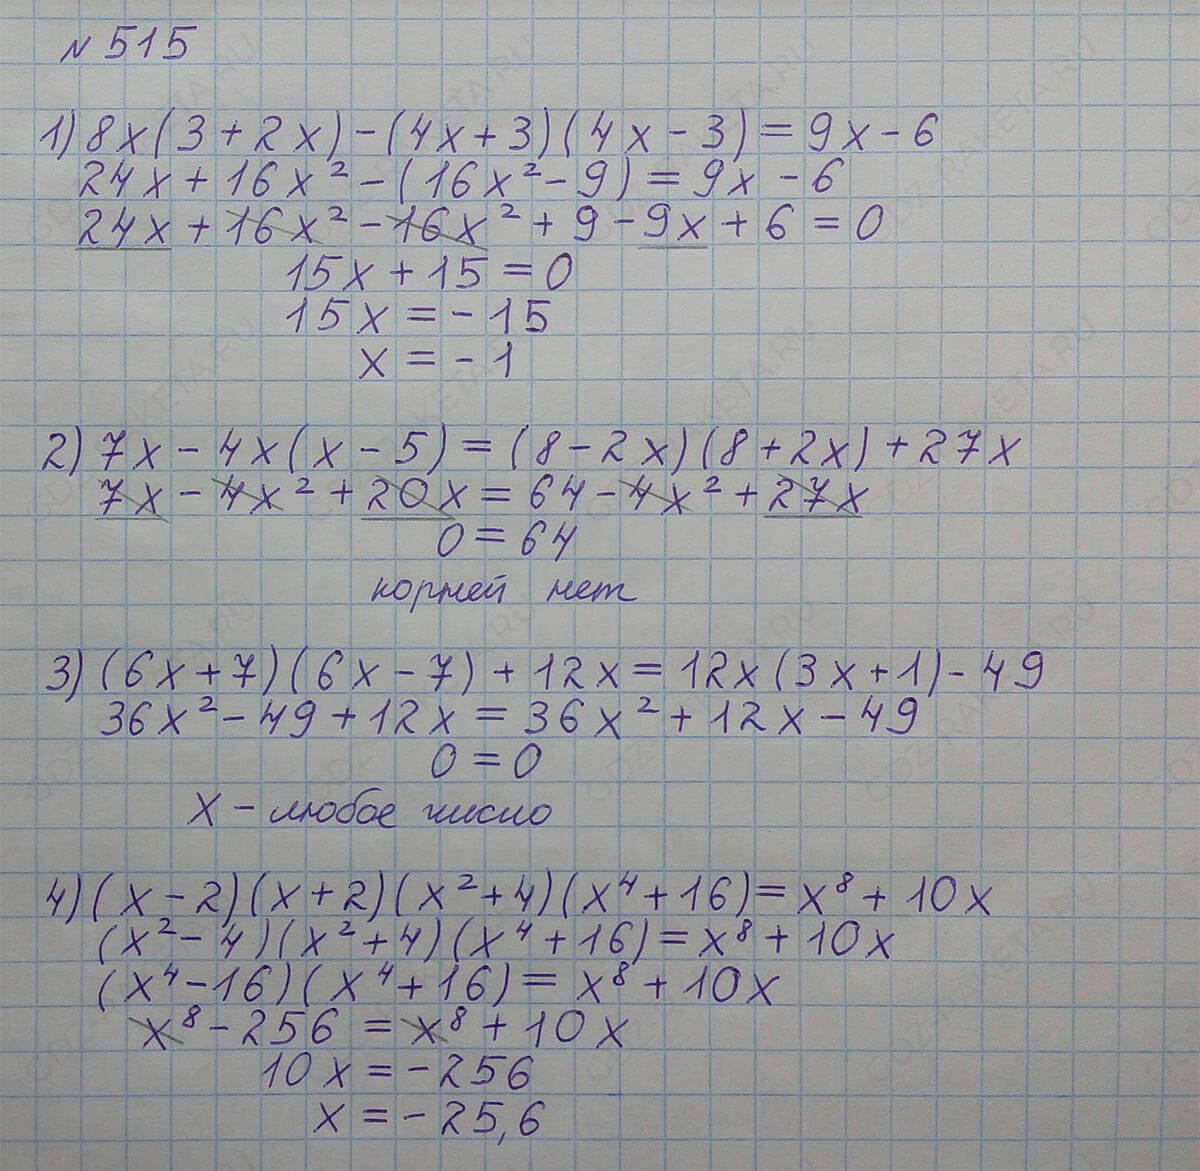 № 515
1) 8x(3+2x)-(4x+3)(4x-3)=9x-6
24x+16x²-(16x²-9)=9x-6
24x+16x²-16x²+9-9x+6=0
15x+15=0
15x=-15
x=-1
2) 7x-4x(x-5)=(8-2x)(8+2x)+27x
7x-4x²+20x=64-4x²+27x
0=64
корней нет
3) (6x+7)(6x-7)+12x=12x(3x+1)-49
36x²-49+12x=36x²+12x-49
0=0
x-любое число
4) (x-2)(x+2)(x²+4)(x⁴+16)=x⁸+10x
(x²-4)(x²+4)(x⁴+16)=x⁸+10x
(x⁴-16)(x⁴+16)=x⁸+10x
x⁸-256=x⁸+10x
10x=-256
x=-25,6